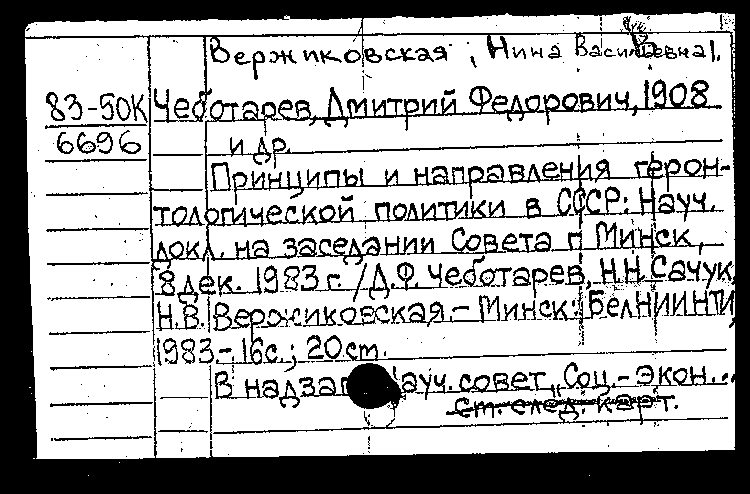 Вержиковская, Нина Васильевна.
83-50К Чеботарев, Дмитрий Федорович, 1908
6696 и др.
Принципы и направления герон-
тологической политики в СССР: Науч.
докл. на заседании Совета г Минск,
8 дек. 1983 г. / Д.Ф. Чеботарев, Н.Н. Сачук,
Н.В. Вержиковская. - Минск: БелНИИНТИ,
1983. - 16с.; 20 см.
В надзаг ауч. совет „Соц. - экон. ...
см. след. карт.